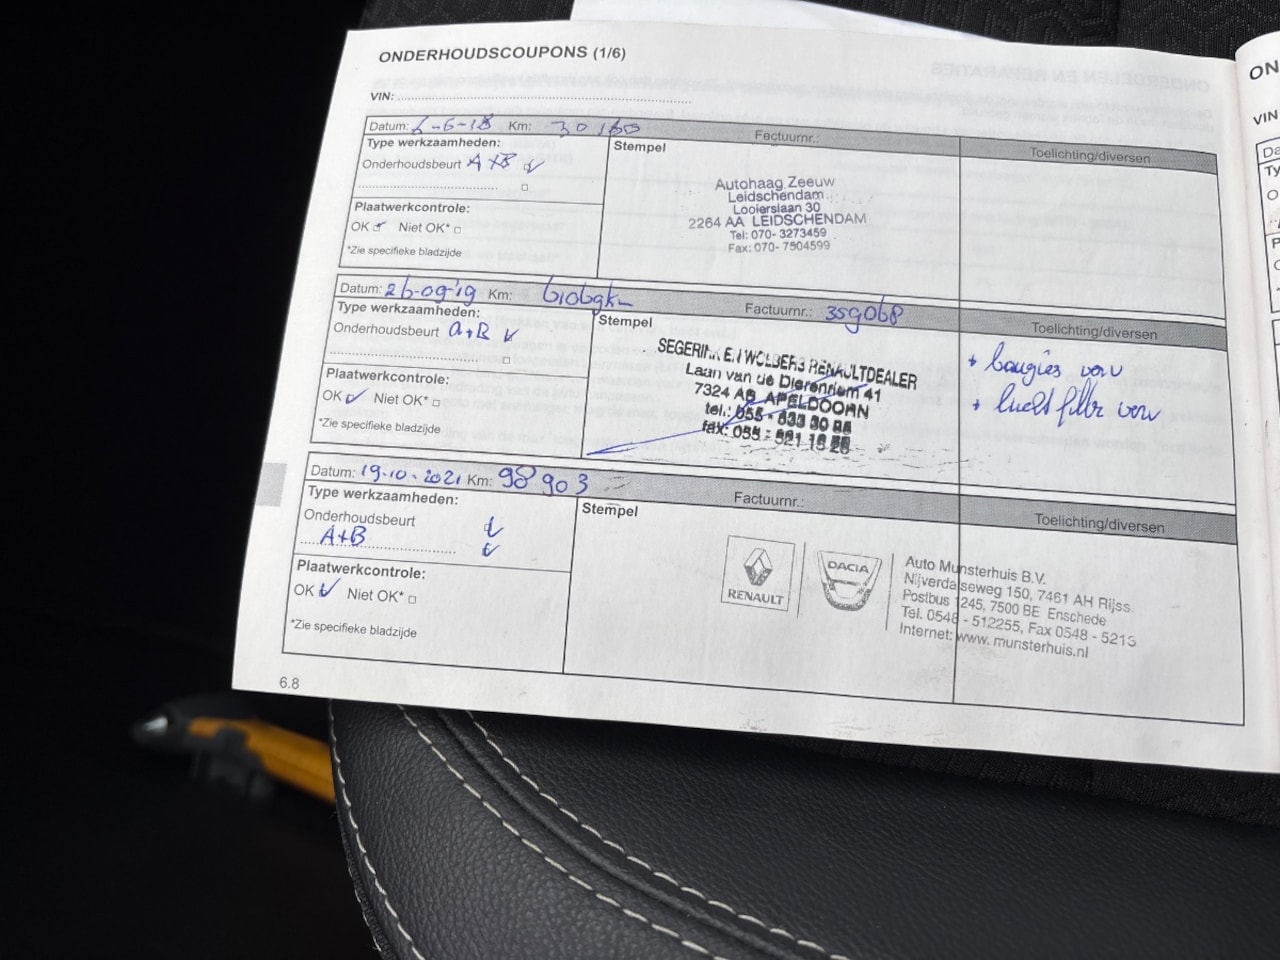 ONDERHOUDSCOUPONS (1/6)
VIN:
Datum: 6-6-18 Km: 30 160 Factuurnr.:
Type werkzaamheden:
Onderhoudsbeurt A+B
Stempel
Toelichting/diversen
Plaatwerkcontrole:
OK Niet OK*
*Zie specifieke bladzijde
Autohaag Zeeuw
Leidschendam
Looierslaan 30
2264 AA LEIDSCHENDAM
Tel: 070- 3273459
Fax: 070- 7504599
Datum: 26-09-'19 Km: Factuurnr.: 359068
Type werkzaamheden:
Onderhoudsbeurt A+B
Stempel
Toelichting/diversen
Plaatwerkcontrole:
OK Niet OK*
*Zie specifieke bladzijde
SEGERINK EN WOLBERS RENAULTDEALER
Laan van de Dierenriem 41
7324 AB APELDOORN
tel.: 055 - 533
fax: 055 - 521
+ bougies verv
+ lucht filter verv
Datum: 19-10-2021 Km: 98 903 Factuurnr.:
Type werkzaamheden:
Onderhoudsbeurt
A+B
Stempel
Toelichting/diversen
Plaatwerkcontrole:
OK Niet OK*
*Zie specifieke bladzijde
RENAULT
DACIA
Auto Munsterhuis B.V.
Nijverdalseweg 150, 7461 AH Rijss
Postbus 1245, 7500 BE Enschede
Tel. 0548 - 512255, Fax 0548 - 5213
Internet: www. munsterhuis.nl
6.8
ON
VIN